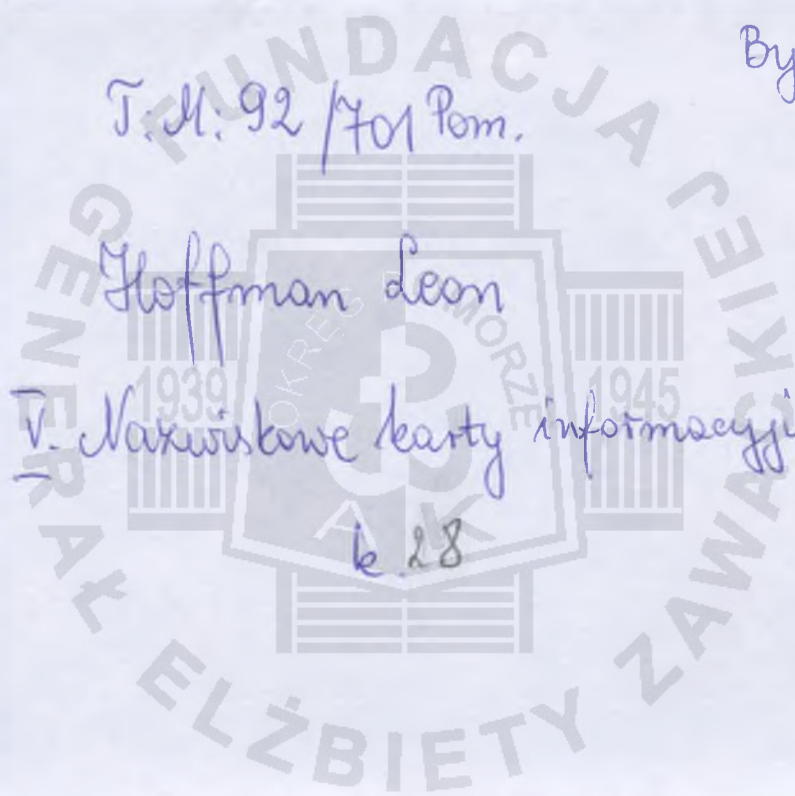 By
T.M: 92/701 Pom.
Hoffman Leon
V. Nazwiskowe karty informacyj
k. 28
FUNDACJA JE
GENERAŁ ELŻBIETY ZAWACKIEJ
OKRĘG POMORZE
1939 1945
AK